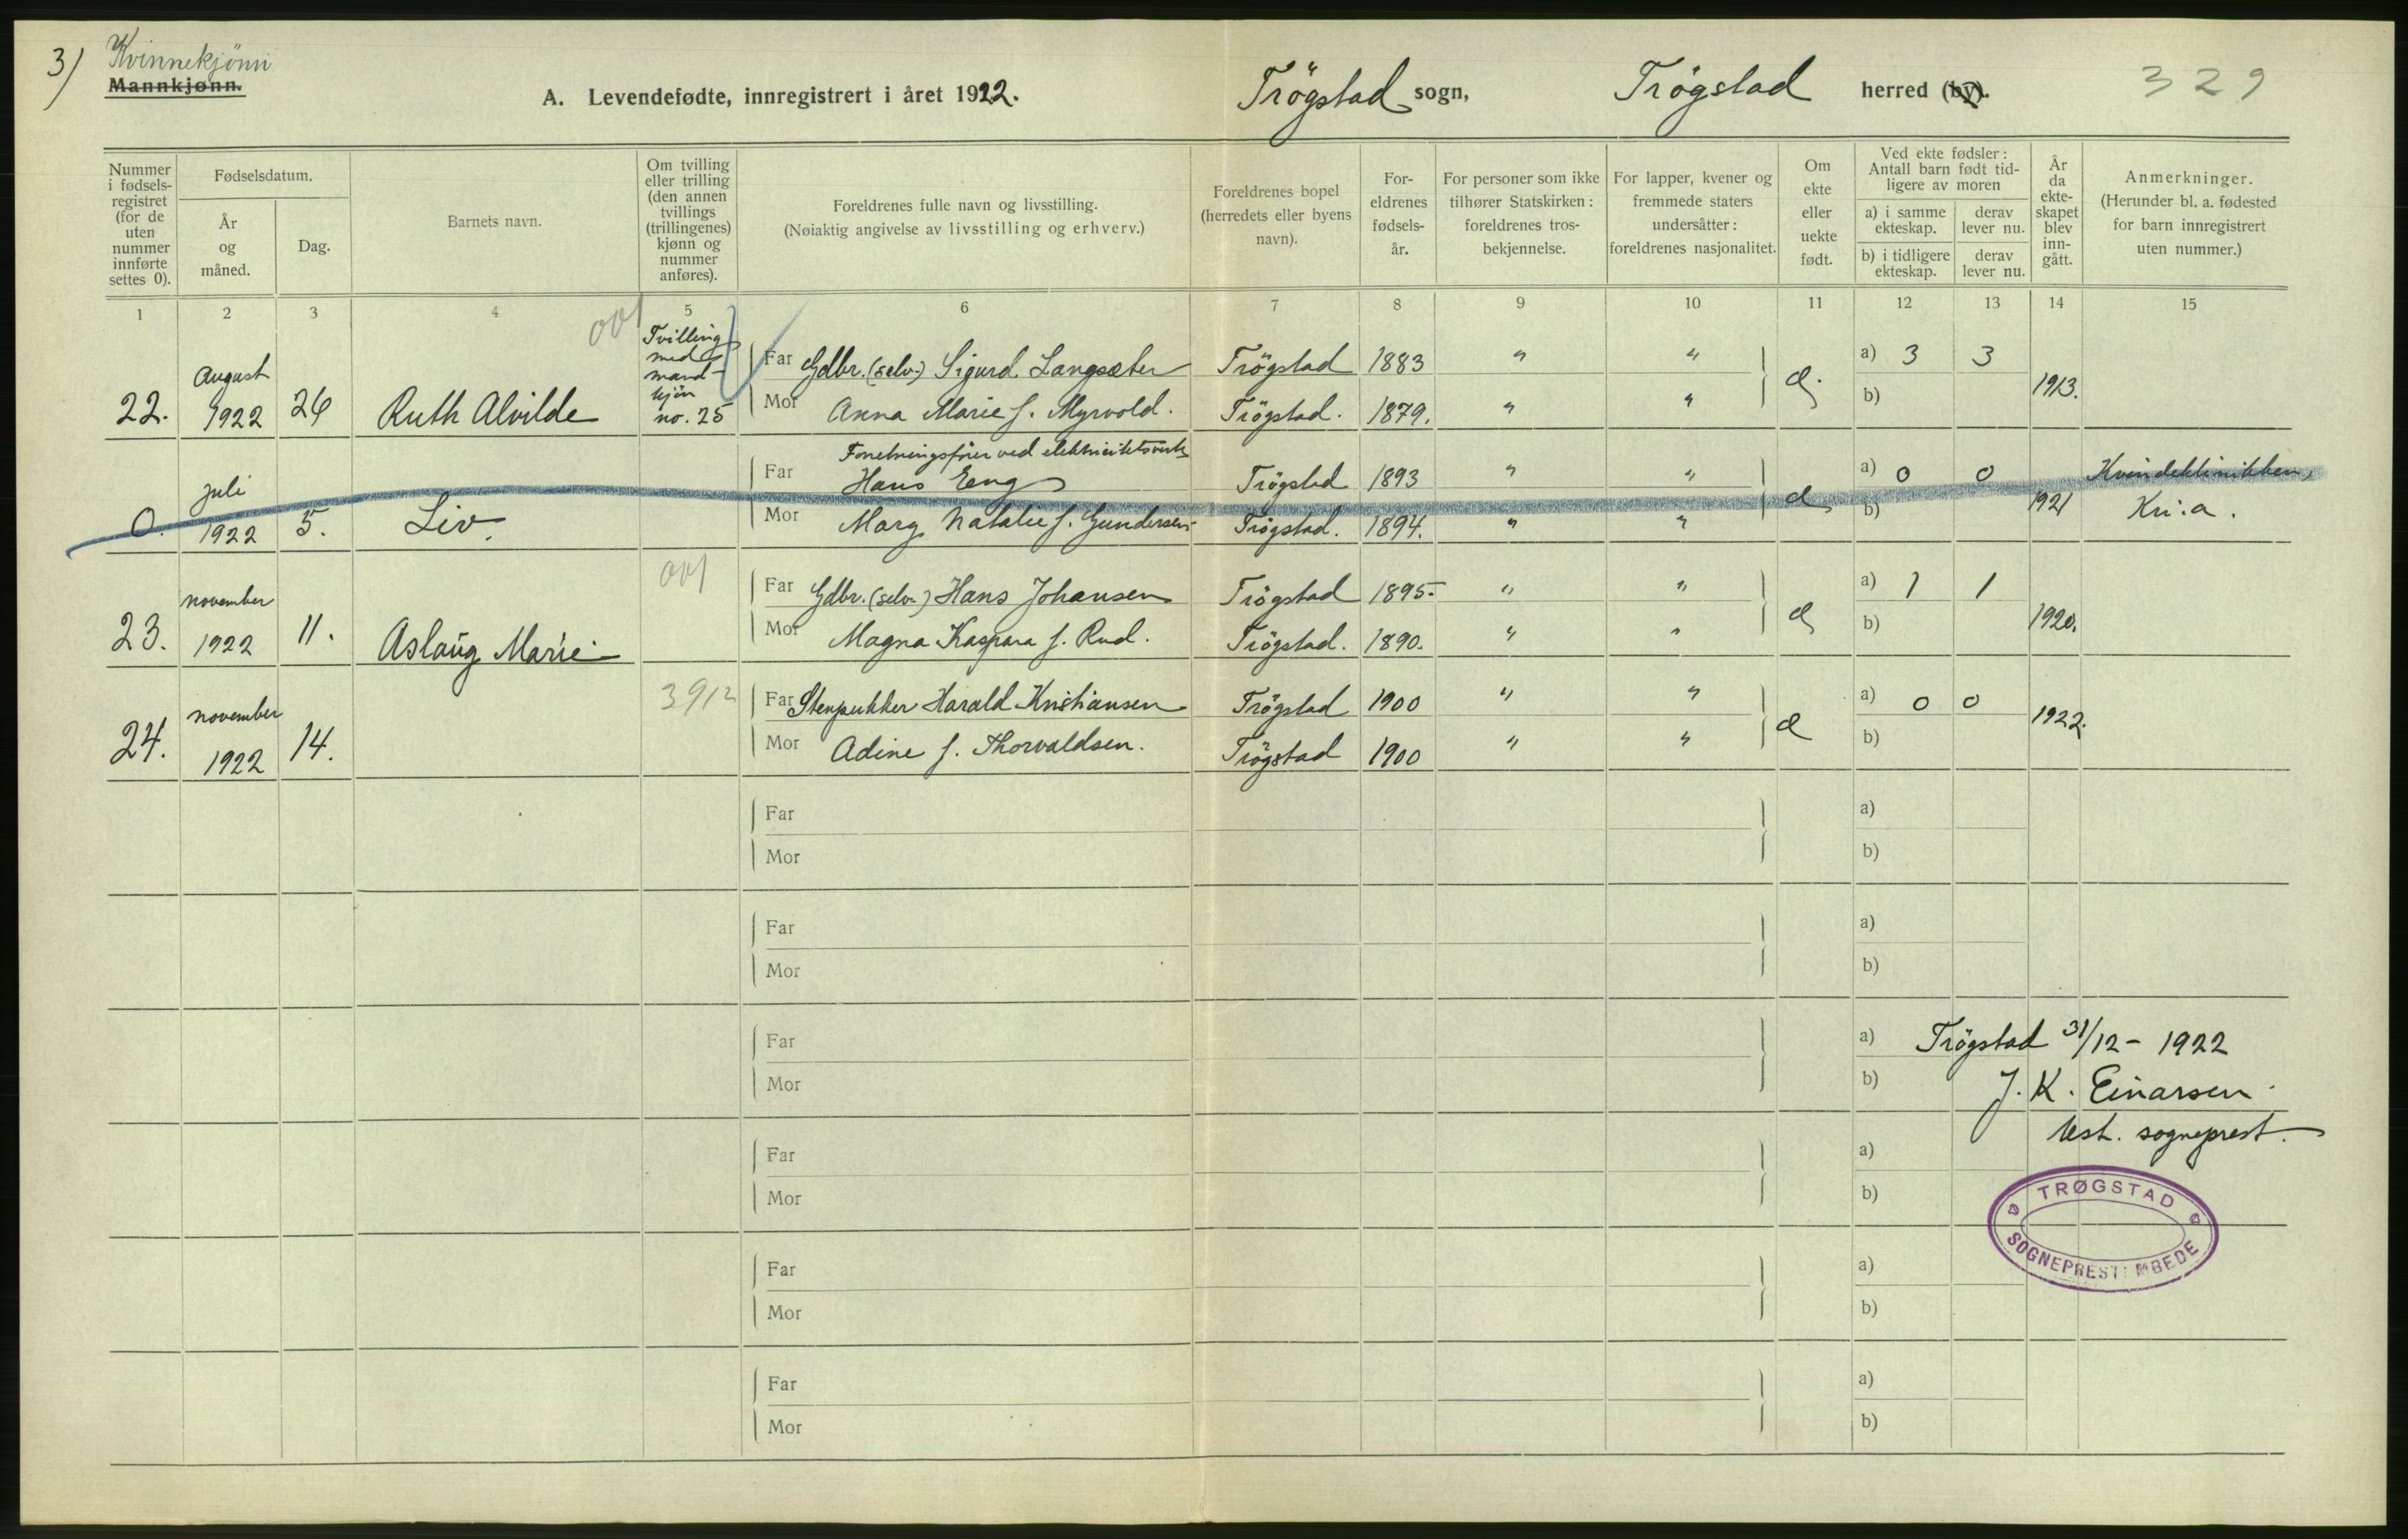 3)
Kvinnekjönn
Mannkjønn.
A. Levendefødte, innregistrert i året 1922.
Trögstad sogn,
Trögstad herred (by).
329
Nummer i fødsels-registret (for de uten nummer innførte settes 0).
Fødselsdatum.
År og måned.
Dag.
Barnets navn.
Om tvilling eller trilling (den annen tvillings (trillingenes) kjønn og nummer anføres).
Foreldrenes fulle navn og livsstilling.
(Nøiaktig angivelse av livsstilling og erhverv.)
Foreldrenes bopel (herredets eller byens navn).
For-eldrenes fødsels-år.
For personer som ikke tilhører Statskirken: foreldrenes tros-bekjennelse.
For lapper, kvener og fremmede staters undersåtter: foreldrenes nasjonalitet.
Om ekte eller uekte født.
Ved ekte fødsler:
Antall barn født tid-ligere av moren
a) i samme ekteskap.
derav lever nu.
b) i tidligere ekteskap.
derav lever nu.
År da ekte-skapet blev inn-gått.
Anmerkninger.
(Herunder bl. a. fødested for barn innregistrert uten nummer.)
1 2 3 4 5 6 7 8 9 10 11 12 13 14 15
001
22. August 1922 26 Ruth Alvilde Tvilling med mand-kjön no. 25
Far Gdbr. (selv.) Sigurd Langsæter Trögstad 1883 " " e. a) 3 3 1913.
Mor Anna Marie f. Myrvold. Trögstad. 1879. " " b)
0. juli 1922 5. Liv.
Forretningsfører ved elektricitetsverk
Far Hans Eng Trögstad 1893 " " e a) 0 0 1921 Kvindeklinikken,
Mor Marg. Natalie f. Gundersen. Trögstad. 1894. " " b) Kri.a.
001
23. november 1922 11. Aslaug Marie
Far Gdbr. (selv.) Hans Johansen Trögstad 1895. " " e a) 1 1 1920.
Mor Magna Kaspara f. Rud. Trögstad. 1890. " " b)
3912
24. november 1922 14.
Far Stenpukker Harald Kristiansen Trögstad 1900 " " e a) 0 0 1922.
Mor Adine f. Thorvaldsen. Trögstad 1900 " " b)
Far a)
Mor b)
Far a)
Mor b)
Far a) Trögstad 31/12 - 1922
Mor b) J. K. Einarsen
Kst. sogneprest.
Far a)
Mor b)
TRØGSTAD
SOGNEPRESTEMBEDE
Far a)
Mor b)
Far a)
Mor b)